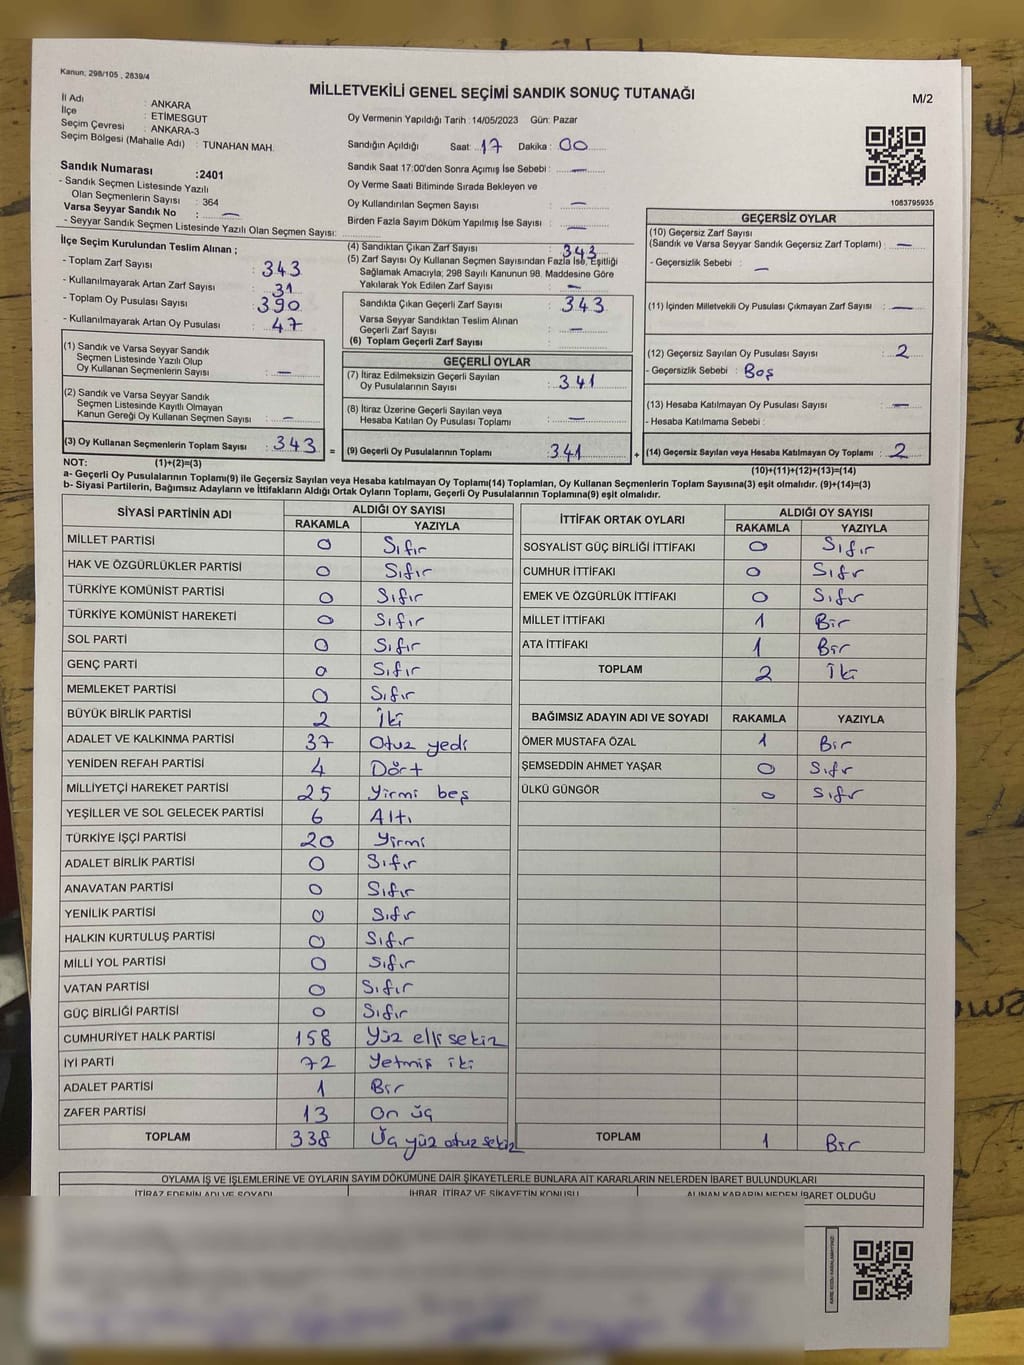 Kanun; 298/105 , 2839/4
MİLLETVEKİLİ GENEL SEÇİMİ SANDIK SONUÇ TUTANAĞI
M/2
İl Adı : ANKARA
İlçe : ETİMESGUT
Seçim Çevresi : ANKARA-3
Seçim Bölgesi (Mahalle Adı) : TUNAHAN MAH.
Sandık Numarası :2401
- Sandık Seçmen Listesinde Yazılı
Olan Seçmenlerin Sayısı : 364
Varsa Seyyar Sandık No : —
- Seyyar Sandık Seçmen Listesinde Yazılı Olan Seçmen Sayısı:
Oy Vermenin Yapıldığı Tarih : 14/05/2023 Gün: Pazar
Sandığın Açıldığı Saat : 17 Dakika : 00
Sandık Saat 17:00'den Sonra Açımış İse Sebebi : —
Oy Verme Saati Bitiminde Sırada Bekleyen ve
Oy Kullandırılan Seçmen Sayısı : —
Birden Fazla Sayım Döküm Yapılmış İse Sayısı : —
1083795935
İlçe Seçim Kurulundan Teslim Alınan ;
- Toplam Zarf Sayısı : 343
- Kullanılmayarak Artan Zarf Sayısı : 31
- Toplam Oy Pusulası Sayısı : 390
- Kullanılmayarak Artan Oy Pusulası : 47
(1) Sandık ve Varsa Seyyar Sandık
Seçmen Listesinde Yazılı Olup
Oy Kullanan Seçmenlerin Sayısı : —
(2) Sandık ve Varsa Seyyar Sandık
Seçmen Listesinde Kayıtlı Olmayan
Kanun Gereği Oy Kullanan Seçmen Sayısı : —
(3) Oy Kullanan Seçmenlerin Toplam Sayısı : 343 =
(4) Sandıktan Çıkan Zarf Sayısı : 343
(5) Zarf Sayısı Oy Kullanan Seçmen Sayısından Fazla İse, Eşitliği
Sağlamak Amacıyla; 298 Sayılı Kanunun 98. Maddesine Göre
Yakılarak Yok Edilen Zarf Sayısı : —
Sandıkta Çıkan Geçerli Zarf Sayısı : 343
Varsa Seyyar Sandıktan Teslim Alınan
Geçerli Zarf Sayısı : —
(6) Toplam Geçerli Zarf Sayısı :
GEÇERLİ OYLAR
(7) İtiraz Edilmeksizin Geçerli Sayılan
Oy Pusulalarının Sayısı : 341
(8) İtiraz Üzerine Geçerli Sayılan veya
Hesaba Katılan Oy Pusulası Toplamı : —
(9) Geçerli Oy Pusulalarının Toplamı : 341 +
GEÇERSİZ OYLAR
(10) Geçersiz Zarf Sayısı
(Sandık ve Varsa Seyyar Sandık Geçersiz Zarf Toplamı) : —
- Geçersizlik Sebebi : —
(11) İçinden Milletvekili Oy Pusulası Çıkmayan Zarf Sayısı : —
(12) Geçersiz Sayılan Oy Pusulası Sayısı : 2
- Geçersizlik Sebebi : Boş
(13) Hesaba Katılmayan Oy Pusulası Sayısı : —
- Hesaba Katılmama Sebebi :
(14) Geçersiz Sayılan veya Hesaba Katılmayan Oy Toplamı : 2
NOT: (1)+(2)=(3)
(10)+(11)+(12)+(13)=(14)
a- Geçerli Oy Pusulalarının Toplamı(9) ile Geçersiz Sayılan veya Hesaba katılmayan Oy Toplamı(14) Toplamları, Oy Kullanan Seçmenlerin Toplam Sayısına(3) eşit olmalıdır. (9)+(14)=(3)
b- Siyasi Partilerin, Bağımsız Adayların ve İttifakların Aldığı Ortak Oyların Toplamı, Geçerli Oy Pusulalarının Toplamına(9) eşit olmalıdır.
SİYASİ PARTİNİN ADI ALDIĞI OY SAYISI
RAKAMLA YAZIYLA
MİLLET PARTİSİ 0 Sıfır
HAK VE ÖZGÜRLÜKLER PARTİSİ 0 Sıfır
TÜRKİYE KOMÜNİST PARTİSİ 0 Sıfır
TÜRKİYE KOMÜNİST HAREKETİ 0 Sıfır
SOL PARTİ 0 Sıfır
GENÇ PARTİ 0 Sıfır
MEMLEKET PARTİSİ 0 Sıfır
BÜYÜK BİRLİK PARTİSİ 2 İki
ADALET VE KALKINMA PARTİSİ 37 Otuz yedi
YENİDEN REFAH PARTİSİ 4 Dört
MİLLİYETÇİ HAREKET PARTİSİ 25 Yirmi beş
YEŞİLLER VE SOL GELECEK PARTİSİ 6 Altı
TÜRKİYE İŞÇİ PARTİSİ 20 Yirmi
ADALET BİRLİK PARTİSİ 0 Sıfır
ANAVATAN PARTİSİ 0 Sıfır
YENİLİK PARTİSİ 0 Sıfır
HALKIN KURTULUŞ PARTİSİ 0 Sıfır
MİLLİ YOL PARTİSİ 0 Sıfır
VATAN PARTİSİ 0 Sıfır
GÜÇ BİRLİĞİ PARTİSİ 0 Sıfır
CUMHURİYET HALK PARTİSİ 158 Yüz elli sekiz
İYİ PARTİ 72 Yetmiş iki
ADALET PARTİSİ 1 Bir
ZAFER PARTİSİ 13 On üç
TOPLAM 338 Üç yüz otuz sekiz
İTTİFAK ORTAK OYLARI ALDIĞI OY SAYISI
RAKAMLA YAZIYLA
SOSYALİST GÜÇ BİRLİĞİ İTTİFAKI 0 Sıfır
CUMHUR İTTİFAKI 0 Sıfır
EMEK VE ÖZGÜRLÜK İTTİFAKI 0 Sıfır
MİLLET İTTİFAKI 1 Bir
ATA İTTİFAKI 1 Bir
TOPLAM 2 İki
BAĞIMSIZ ADAYIN ADI VE SOYADI RAKAMLA YAZIYLA
ÖMER MUSTAFA ÖZAL 1 Bir
ŞEMSEDDİN AHMET YAŞAR 0 Sıfır
ÜLKÜ GÜNGÖR 0 Sıfır
TOPLAM 1 Bir
OYLAMA İŞ VE İŞLEMLERİNE VE OYLARIN SAYIM DÖKÜMÜNE DAİR ŞİKAYETLERLE BUNLARA AİT KARARLARIN NELERDEN İBARET BULUNDUKLARI
İTİRAZ EDENİN ADI VE SOYADI İHBAR, İTİRAZ VE ŞİKAYETİN KONUSU ALINAN KARARIN NEDEN İBARET OLDUĞU